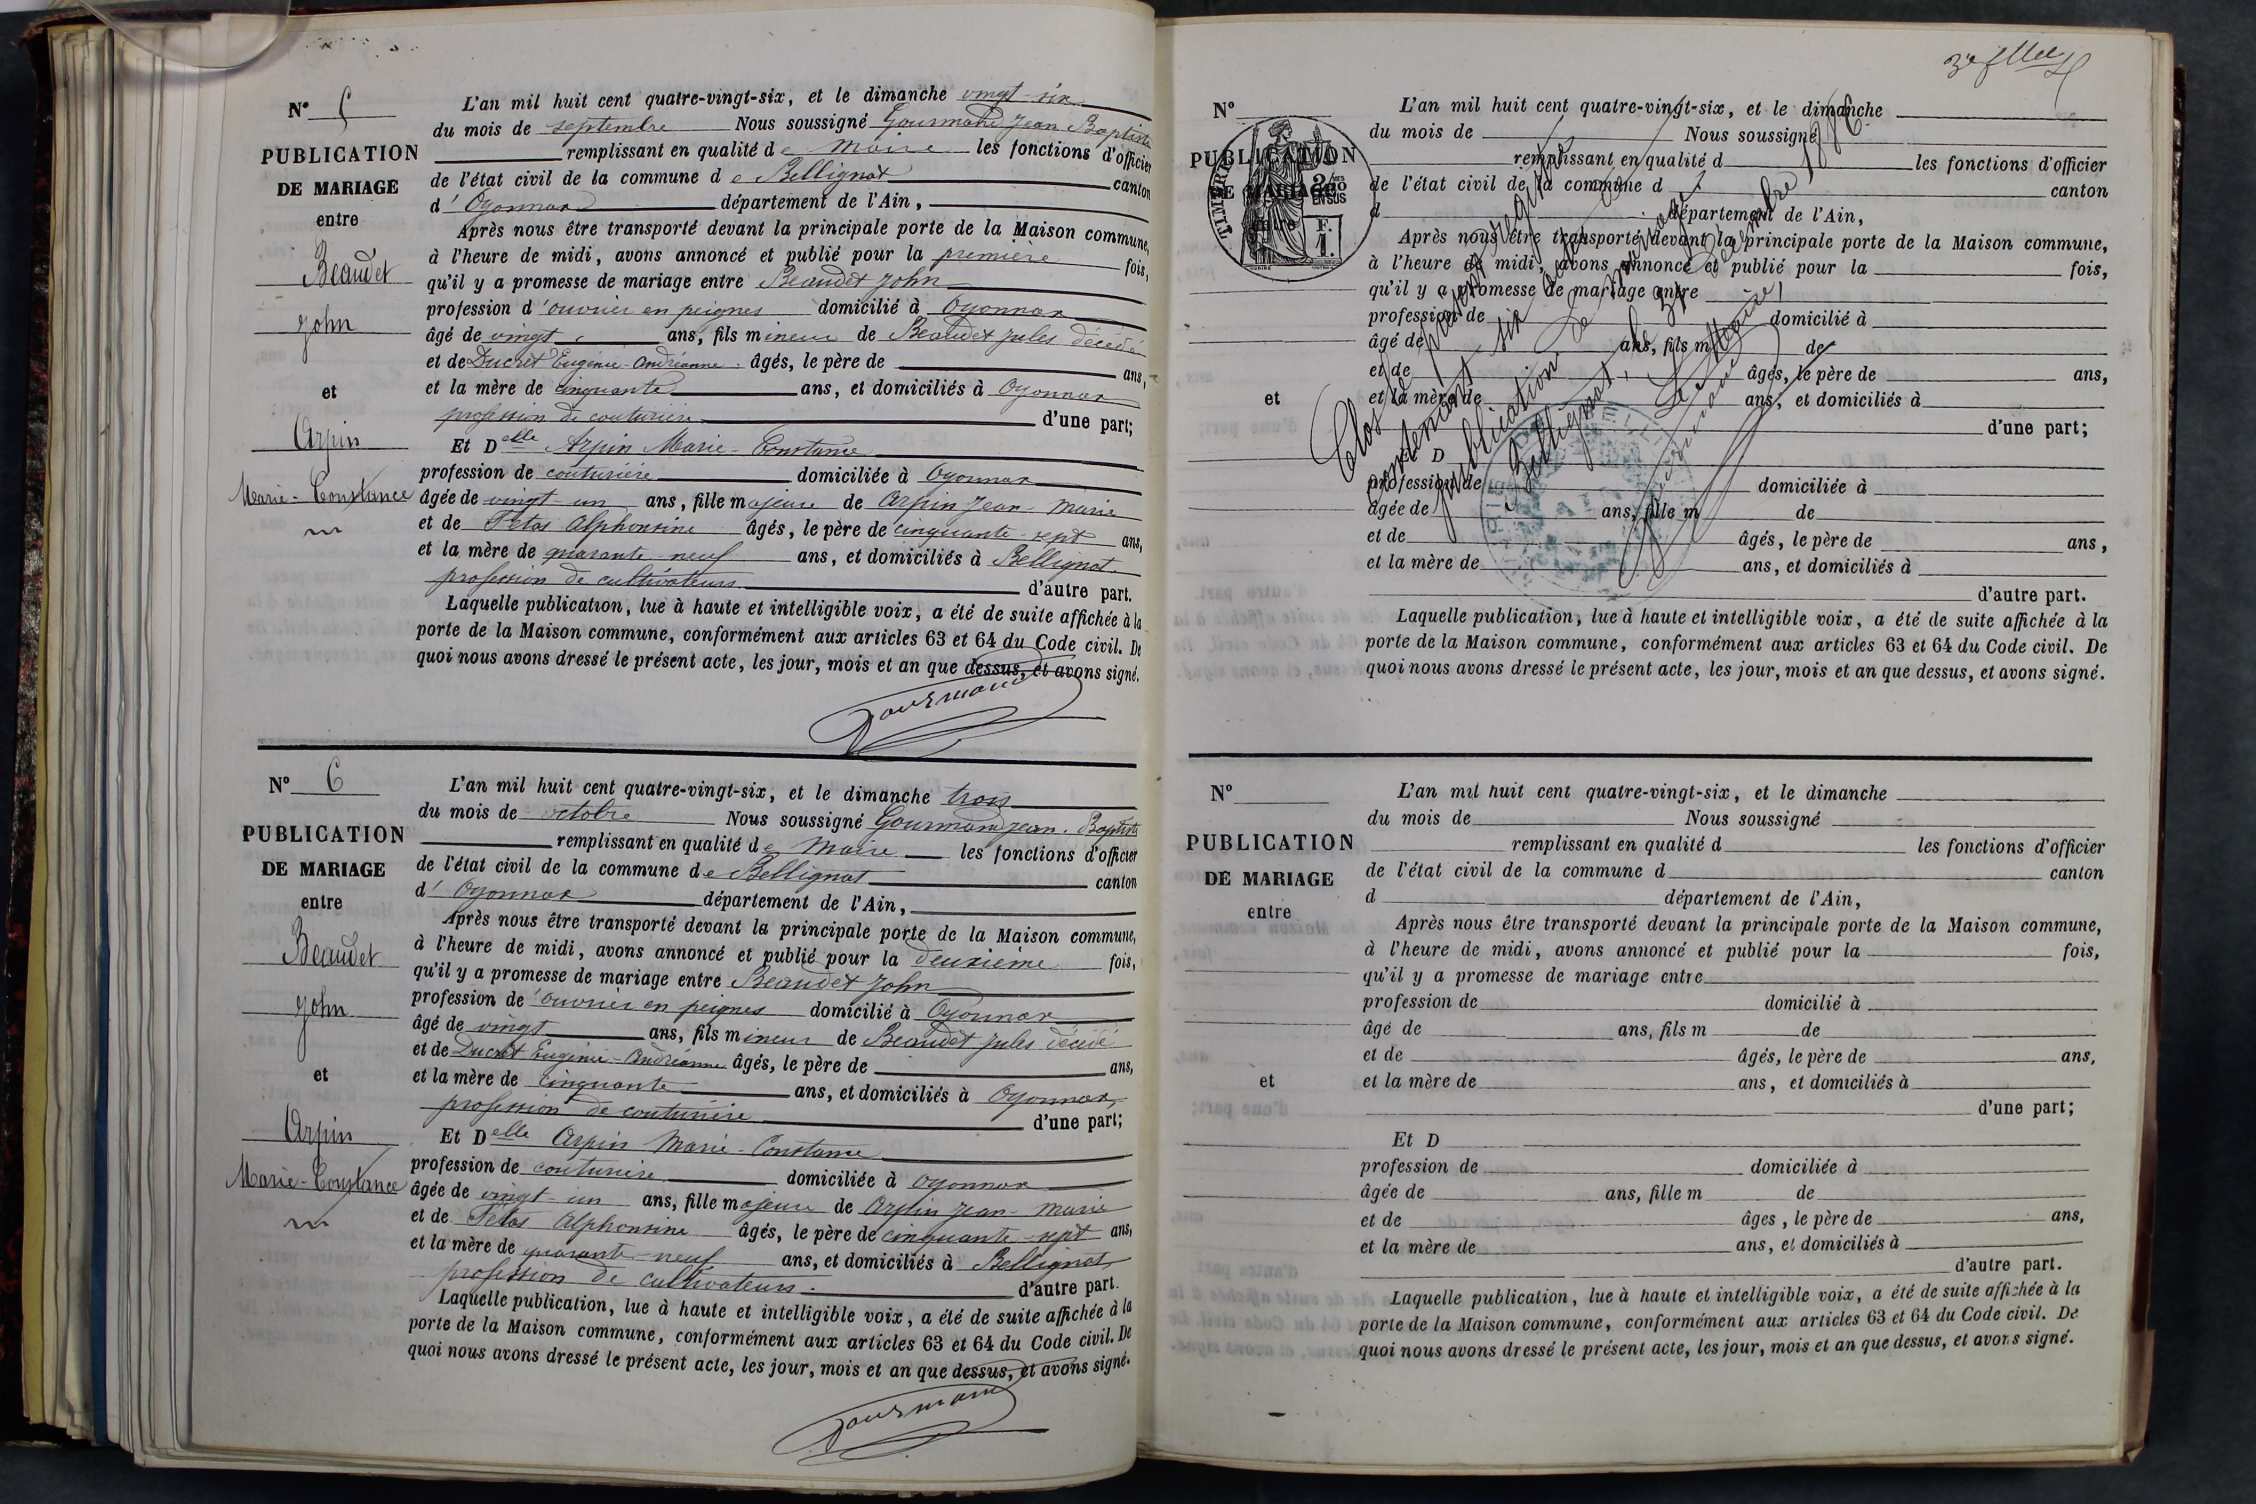 N° 5
PUBLICATION
DE MARIAGE
entre
Beaudet
John
et
Arpin
Marie-Constance
L'an mil huit cent quatre-vingt-six, et le dimanche vingt-six
du mois de septembre Nous soussigné Gourmand Jean Baptiste
remplissant en qualité de Maire les fonctions d'officier
de l'état civil de la commune de Bellignat canton
d'Oyonnax département de l'Ain,
Après nous être transporté devant la principale porte de la Maison commune,
à l'heure de midi, avons annoncé et publié pour la première fois,
qu'il y a promesse de mariage entre Beaudet John
profession d'ouvrier en peignes domicilié à Oyonnax
âgé de vingt ans, fils mineur de Beaudet Jules décédé
et de Ducret Eugénie-Andréanne âgés, le père de ans,
et la mère de cinquante ans, et domiciliés à Oyonnax
profession de couturière d'une part;
Et Delle Arpin Marie-Constance
profession de couturière domiciliée à Oyonnax
âgée de vingt-un ans, fille majeure de Arpin Jean-Marie
et de Fétas Alphonsine âgés, le père de cinquante-sept ans,
et la mère de quarante-neuf ans, et domiciliés à Bellignat
profession de cultivateurs d'autre part.
Laquelle publication, lue à haute et intelligible voix, a été de suite affichée à la
porte de la Maison commune, conformément aux articles 63 et 64 du Code civil. De
quoi nous avons dressé le présent acte, les jour, mois et an que dessus, et avons signé.
Gourmand
N° 6
PUBLICATION
DE MARIAGE
entre
Beaudet
John
et
Arpin
Marie-Constance
L'an mil huit cent quatre-vingt-six, et le dimanche trois
du mois de octobre Nous soussigné Gourmand Jean-Baptiste
remplissant en qualité de Maire les fonctions d'officier
de l'état civil de la commune de Bellignat canton
d'Oyonnax département de l'Ain,
Après nous être transporté devant la principale porte de la Maison commune,
à l'heure de midi, avons annoncé et publié pour la deuxième fois,
qu'il y a promesse de mariage entre Beaudet John
profession de ouvrier en peignes domicilié à Oyonnax
âgé de vingt ans, fils mineur de Beaudet Jules décédé
et de Ducret Eugénie-Andréanne âgés, le père de ans,
et la mère de cinquante ans, et domiciliés à Oyonnax,
profession de couturière d'une part;
Et Delle Arpin Marie-Constance
profession de couturière domiciliée à Oyonnax
âgée de vingt-un ans, fille majeure de Arpin Jean-Marie
et de Fétas Alphonsine âgés, le père de cinquante-sept ans,
et la mère de quarante-neuf ans, et domiciliés à Bellignat
profession de cultivateurs. d'autre part.
Laquelle publication, lue à haute et intelligible voix, a été de suite affichée à la
porte de la Maison commune, conformément aux articles 63 et 64 du Code civil. De
quoi nous avons dressé le présent acte, les jour, mois et an que dessus, et avons signé.
Gourmand
N°
PUBLICATION
DE MARIAGE
entre
et
TIMBRE
F. 1.
L'an mil huit cent quatre-vingt-six, et le dimanche
du mois de Nous soussigné
remplissant en qualité d les fonctions d'officier
de l'état civil de la commune d canton
d département de l'Ain,
Après nous être transporté devant la principale porte de la Maison commune,
à l'heure de midi, avons annoncé et publié pour la fois,
qu'il y a promesse de mariage entre
profession de domicilié à
âgé de ans, fils m de
et de âgés, le père de ans,
et la mère de ans, et domiciliés à
d'une part;
Et D
profession de domiciliée à
âgée de ans, fille m de
et de âgés, le père de ans,
et la mère de ans, et domiciliés à
d'autre part.
Laquelle publication, lue à haute et intelligible voix, a été de suite affichée à la
porte de la Maison commune, conformément aux articles 63 et 64 du Code civil. De
quoi nous avons dressé le présent acte, les jour, mois et an que dessus, et avons signé.
Clos le présent registre
contenant six actes de
publication de mariage
Bellignat, le 31 Décembre 1886.
Le Maire,
Gourmand
N°
PUBLICATION
DE MARIAGE
entre
et
L'an mil huit cent quatre-vingt-six, et le dimanche
du mois de Nous soussigné
remplissant en qualité d les fonctions d'officier
de l'état civil de la commune d canton
d département de l'Ain,
Après nous être transporté devant la principale porte de la Maison commune,
à l'heure de midi, avons annoncé et publié pour la fois,
qu'il y a promesse de mariage entre
profession de domicilié à
âgé de ans, fils m de
et de âgés, le père de ans,
et la mère de ans, et domiciliés à
d'une part;
Et D
profession de domiciliée à
âgée de ans, fille m de
et de âges, le père de ans,
et la mère de ans, et domiciliés à
d'autre part.
Laquelle publication, lue à haute et intelligible voix, a été de suite affichée à la
porte de la Maison commune, conformément aux articles 63 et 64 du Code civil. De
quoi nous avons dressé le présent acte, les jour, mois et an que dessus, et avons signé.